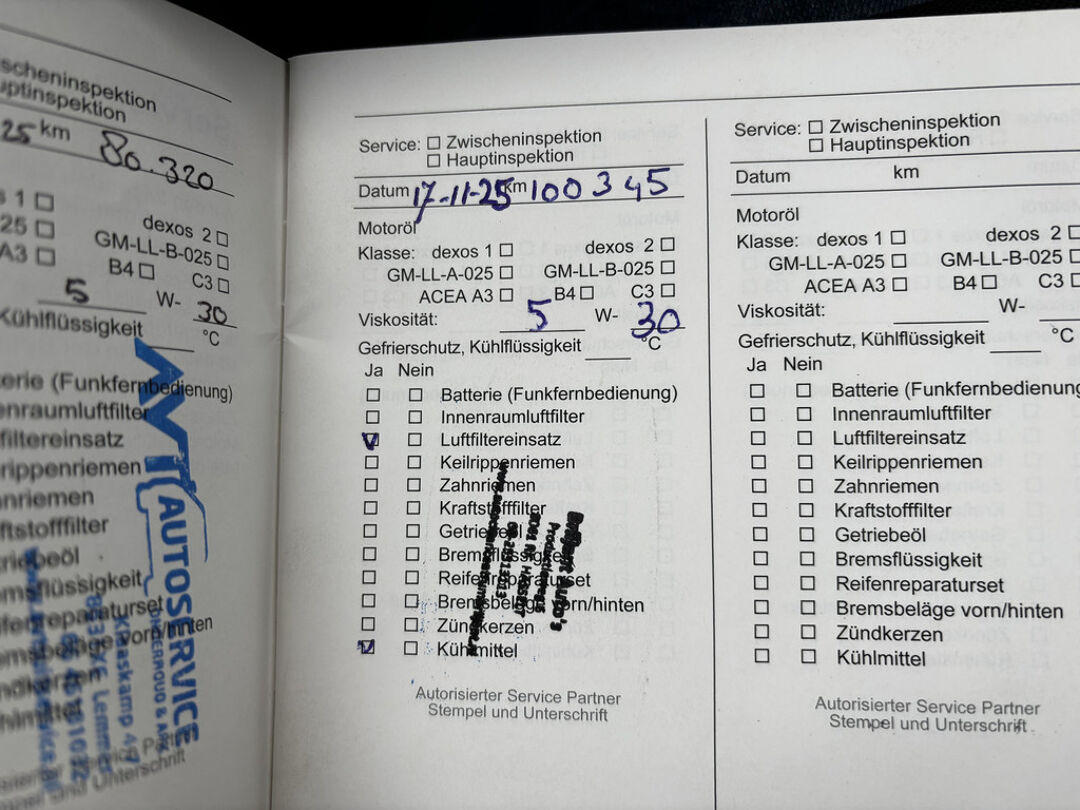 scheninspektion
uptinspektion
25 km 80.320
s 1
dexos 2
025
GM-LL-B-025
A3
B4
C3
5 W- 30
Kühlflüssigkeit
°C
terie (Funkfernbedienung)
enraumluftfilter
filtereinsatz
lrippenriemen
nriemen
ftstofffilter
triebeöl
emsflüssigkeit
ifenreparaturset
emsbeläge vorn/hinten
ndkerzen
hlmittel
AUTOSERVICE
Lemmer
Service: Zwischeninspektion
Hauptinspektion
Datum 17-11-25 km 100345
Motoröl
Klasse: dexos 1 dexos 2
GM-LL-A-025 GM-LL-B-025
ACEA A3 B4 C3
Viskosität: 5 W- 30
Gefrierschutz, Kühlflüssigkeit °C
Ja Nein
Batterie (Funkfernbedienung)
Innenraumluftfilter
V Luftfiltereinsatz
Keilrippenriemen
Zahnriemen
Kraftstofffilter
Getriebeöl
Bremsflüssigkeit
Reifenreparaturset
Bremsbeläge vorn/hinten
Zündkerzen
V Kühlmittel
Autorisierter Service Partner
Stempel und Unterschrift
Service: Zwischeninspektion
Hauptinspektion
Datum km
Motoröl
Klasse: dexos 1 dexos 2
GM-LL-A-025 GM-LL-B-025
ACEA A3 B4 C3
Viskosität: W-
Gefrierschutz, Kühlflüssigkeit °C
Ja Nein
Batterie (Funkfernbedienung
Innenraumluftfilter
Luftfiltereinsatz
Keilrippenriemen
Zahnriemen
Kraftstofffilter
Getriebeöl
Bremsflüssigkeit
Reifenreparaturset
Bremsbeläge vorn/hinten
Zündkerzen
Kühlmittel
Autorisierter Service Partner
Stempel und Unterschrift